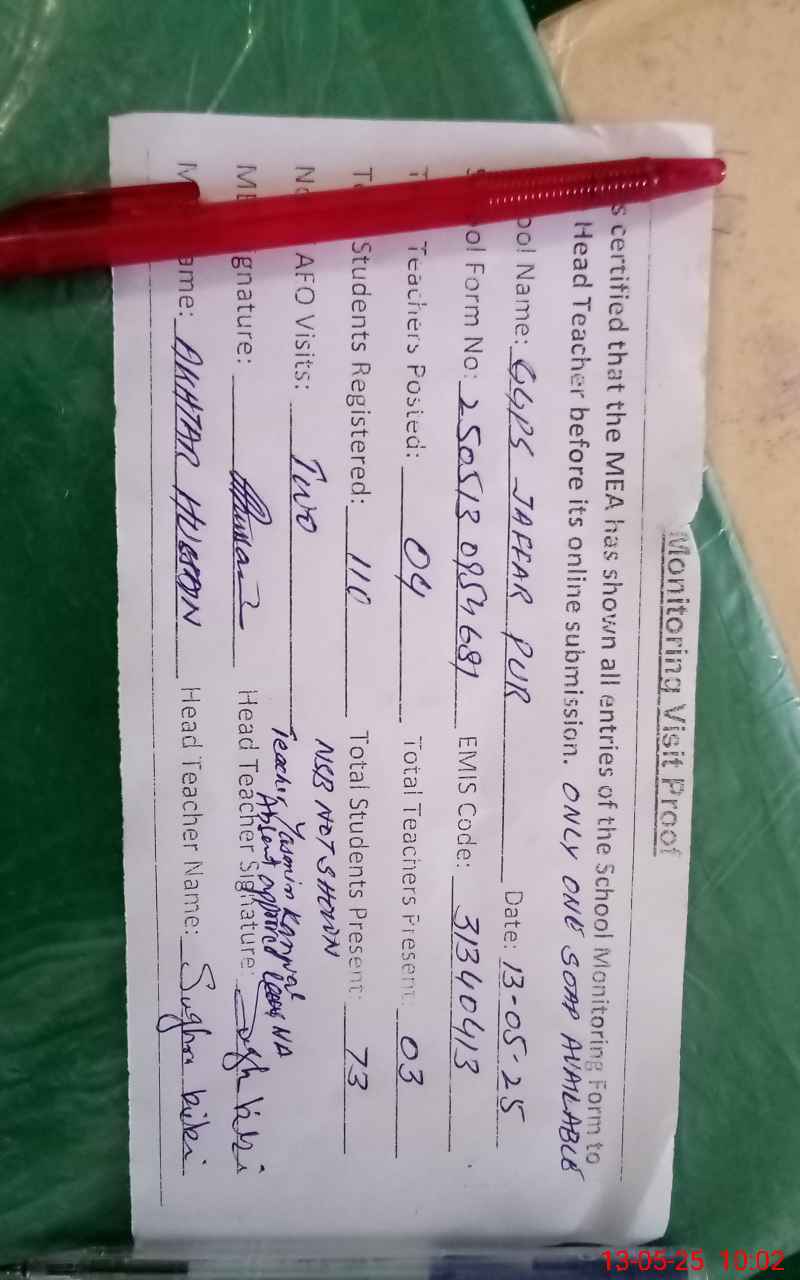 Monitoring Visit Proof
s certified that the MEA has shown all entries of the School Monitoring Form to
Head Teacher before its online submission. ONLY ONE SOAP AVAILABLE
ool Name: GGPS JAFFAR PUR Date: 13-05-25
ol Form No: 250513 0954681 EMIS Code: 31340413
Teachers Posted: 04 Total Teachers Present: 03
Students Registered: 110 Total Students Present: 73
NSB NOT SHOWN
No AFO Visits: Two
Teacher, Yasmin
Absent NA
gnature: Head Teacher Signature:
ame: AKHTAR HUSSAIN Head Teacher Name: Sughra bibi
13-05-25 10:02